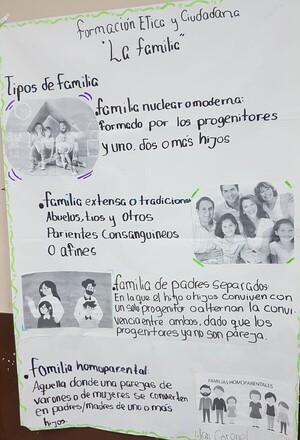 formación Etica y Ciudadana
"La familia"
Tipos de familia
.familia nuclear o moderna:
formado por los progenitores
y uno, dos o más hijos
.familia extensa o tradicional
Abuelos, tios y otros
Parientes Consanguineos
O afines
familia de padres separados:
En la que el hijo o hijos conviven con
un solo progenitor o alternan la convi-
vencia entre ambos, dado que los
progenitores ya no son pareja.
.familia homoparental:
Aquella donde una parejas de
varones o de mujeres se convierten
en padres/madres de uno o más
hijos.
FAMILIAS HOMOPARENTALES